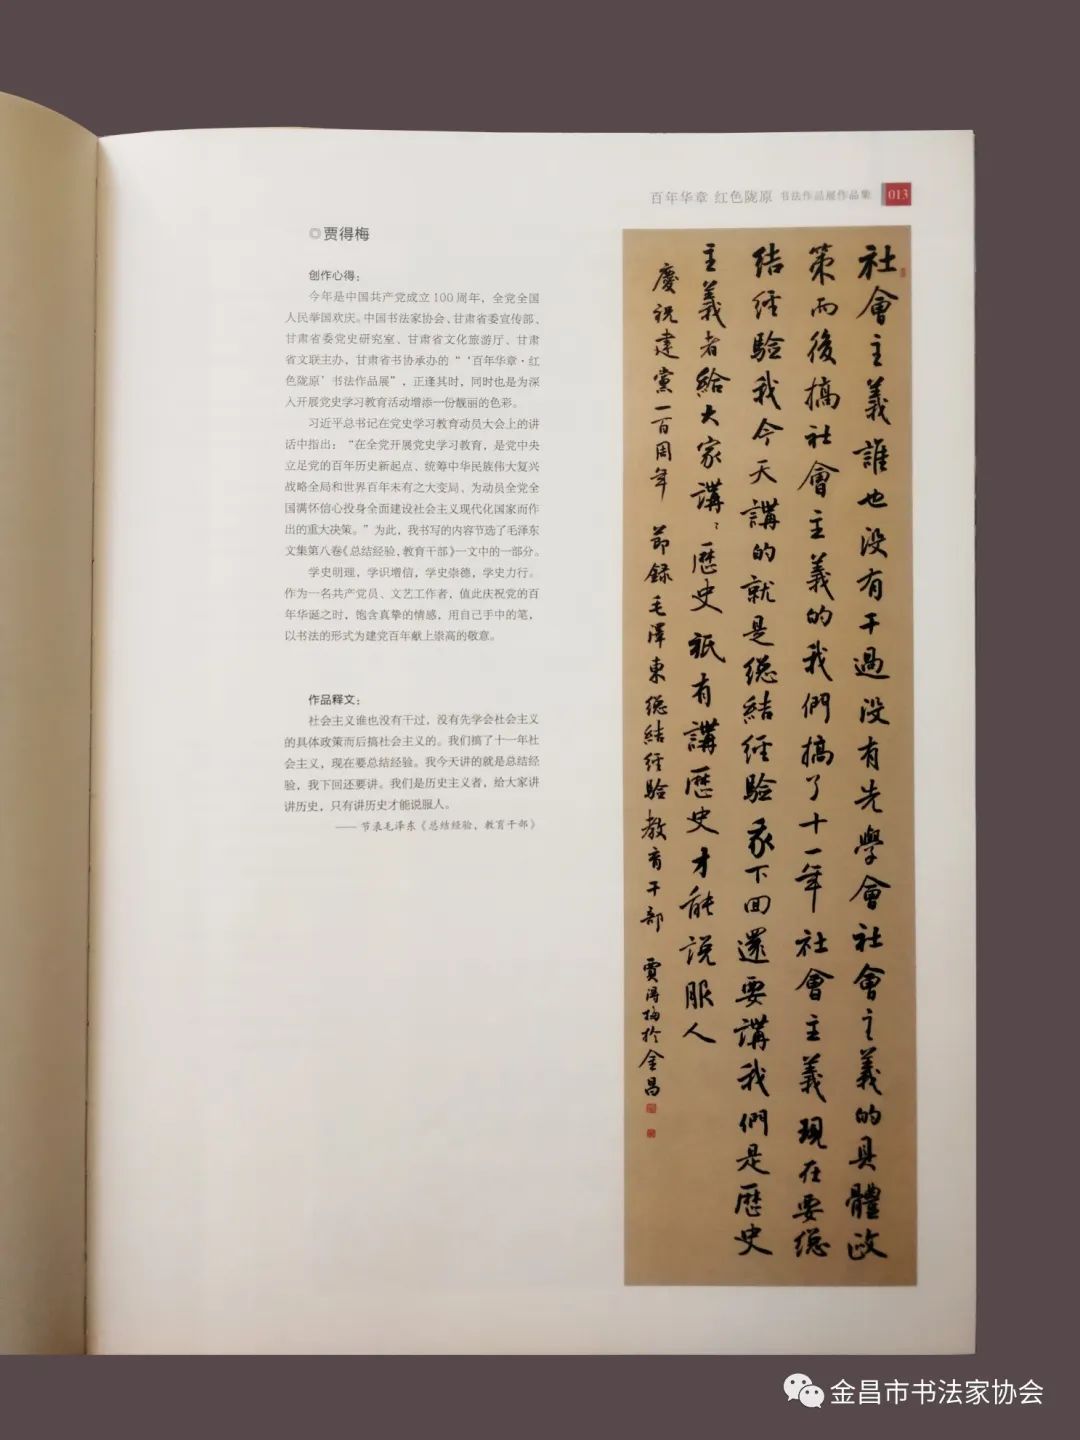 百年华章 红色陇原 书法作品展作品集 013
◎贾得梅
创作心得：
今年是中国共产党成立100周年，全党全国
人民举国欢庆。中国书法家协会、甘肃省委宣传部、
甘肃省委党史研究室、甘肃省文化旅游厅、甘肃
省文联主办，甘肃省书协承办的“‘百年华章·红
色陇原’书法作品展”，正逢其时，同时也是为深
入开展党史学习教育活动增添一份靓丽的色彩。
习近平总书记在党史学习教育动员大会上的讲
话中指出：“在全党开展党史学习教育，是党中央
立足党的百年历史新起点、统筹中华民族伟大复兴
战略全局和世界百年未有之大变局、为动员全党全
国满怀信心投身全面建设社会主义现代化国家而作
出的重大决策。”为此，我书写的内容节选了毛泽东
文集第八卷《总结经验，教育干部》一文中的一部分。
学史明理，学识增信，学史崇德，学史力行。
作为一名共产党员、文艺工作者，值此庆祝党的百
年华诞之时，饱含真挚的情感，用自己手中的笔，
以书法的形式为建党百年献上崇高的敬意。
作品释文：
社会主义谁也没有干过，没有先学会社会主义
的具体政策而后搞社会主义的。我们搞了十一年社
会主义，现在要总结经验。我今天讲的就是总结经
验，我下回还要讲。我们是历史主义者，给大家讲
讲历史，只有讲历史才能说服人。
—— 节录毛泽东《总结经验，教育干部》
社會主義誰也没有干過没有先學會社會主義的具體政
策而後搞社會主義的我們搞了十一年社會主義現在要總
结經驗我今天講的就是總結經驗我下回還要講我們是歷史
主義者給大家講〻歷史祇有講歷史才能説服人
慶祝建黨一百周年 節録毛澤東總結經驗教育干部 賈得梅於金昌
金昌市书法家协会